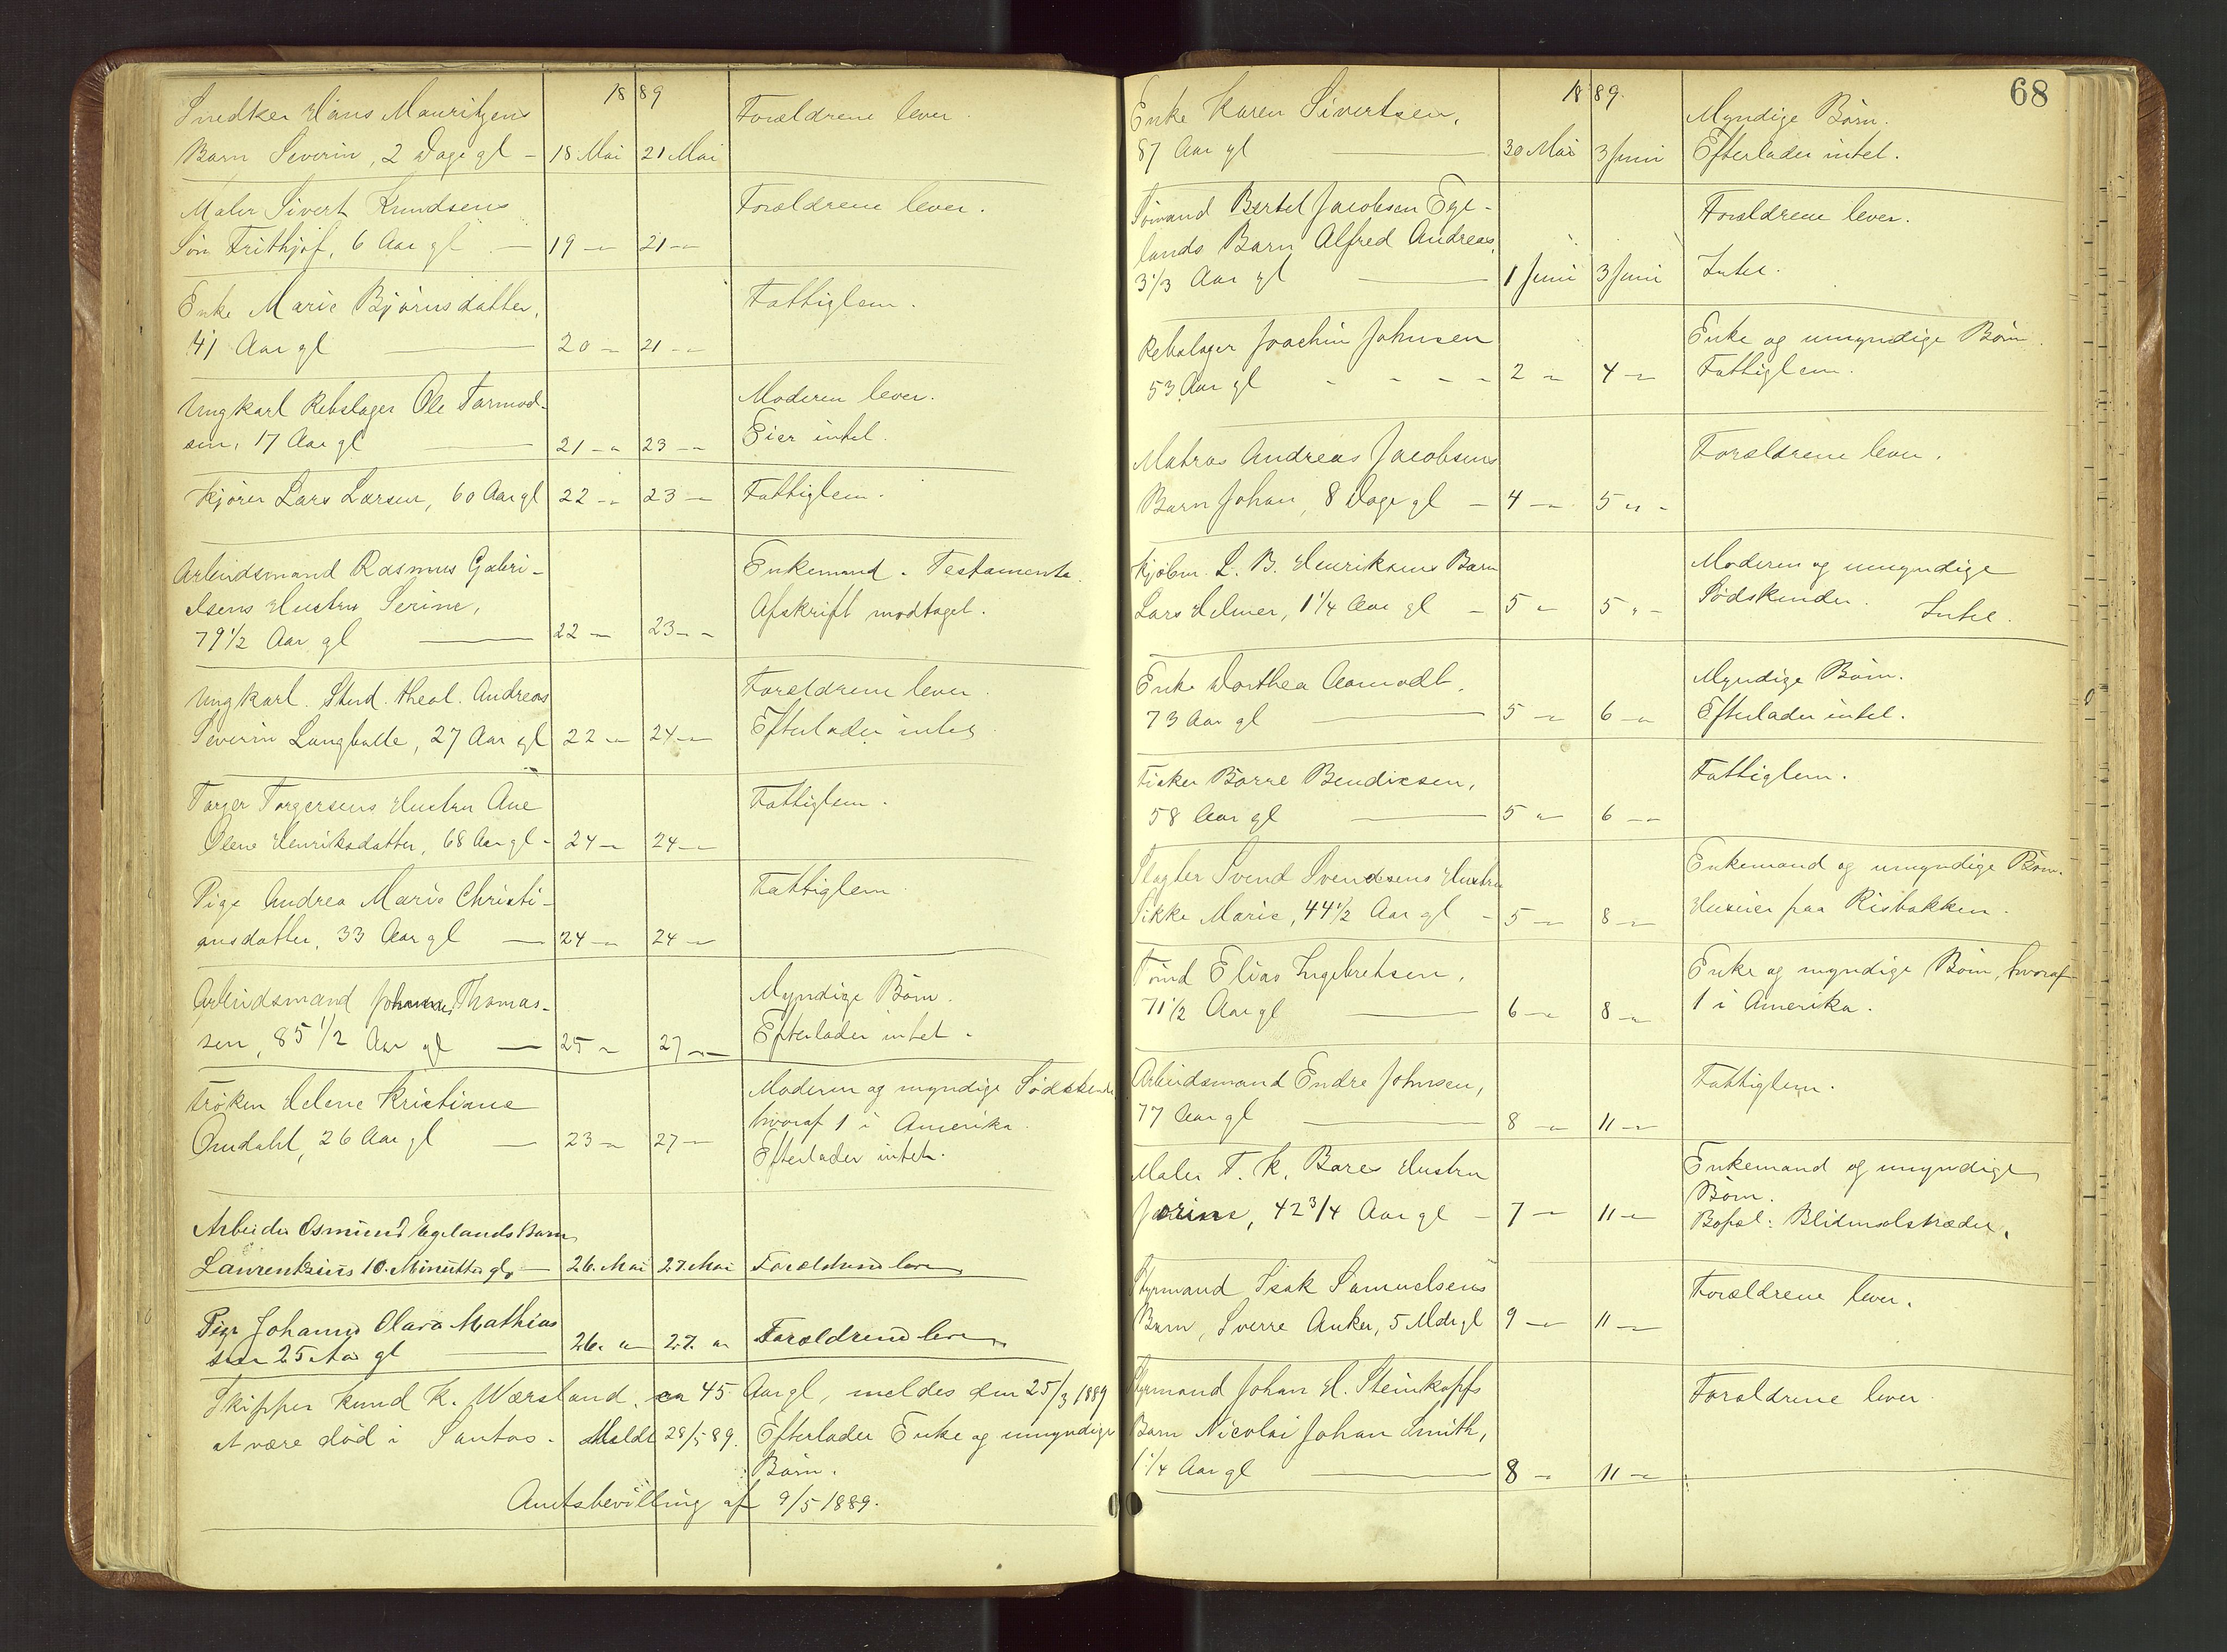 1889
Snedker Hans Mauritzens
Barn Severin, 2 Dage gl – 18 Mai 21 Mai Forældrene lever.
Maler Sivert Knudsens
Søn Frithjof, 6 Aar gl — 19 — 21 — Forældrene lever.
Enke Marie Bjørnsdatter,
41 Aar gl — 20 — 21 — Fattiglem.
Ungkarl Rebslager Ole Tormod- Moderen lever.
sen, 17 Aar gl — 21 — 23 — Eier intet.
Kjører Lars Larsen, 60 Aar gl 22 — 23 — Fattiglem.
Arbeidsmand Rasmus Gabri- Enkemand. Testamente.
elsens Hustru Serine, Afskrift modtaget.
79 1/2 Aar gl — 22 — 23 —
Ungkarl. Stud. theol. Andreas Forældrene lever.
Severin Langballe, 27 Aar gl 22 — 24 — Efterlader intet
Torger Torgersens Hustru Ane Fattiglem.
Olene Henriksdatter, 68 Aar gl – 24 — 24 —
Pige Andrea Marie Christi- Fattiglem
ansdatter, 33 Aar gl — 24 — 24 —
Arbeidsmand Johannes Thomas- Myndige Børn.
sen, 85 1/2 Aar gl — 25 — 27 — Efterlader intet.
Frøken Helene Kristiane Moderen og myndige Sødskende
Omdahl, 26 Aar gl — 23 — 27 — hvoraf 1 i Amerika.
Efterlader intet.
Arbeider Osmund Egelands Barn
Laurentzius 10. Minutter gl. — 26. Mai 27. Mai Forældrene lever
Pige Johanne Olava Mathias
sen 25 Aar gl — 26. — 27. — Forældrene lever
Skipper Knud K. Wærsland, ca 45 Aar gl, meldes den 25/3 1889
at være død i Santos. Meldt 28/5 89. Efterlader Enke og umyndige
Børn.
Amtsbevilling af 9/5 1889.
68
1889.
Enke Karen Sivertsen, Myndige Børn.
87 Aar gl — 30 Mai 3 Juni Efterlader intet.
Sømand Bertel Jacobsen Ege- Forældrene lever.
lands Barn Alfred Andreas,
3 1/3 Aar gl — 1 Juni 3 Juni Intet.
Rebslager Joachim Johnsen Enke og umyndige Børn.
53 Aar gl - - - - 2 — 4 — Fattiglem.
Matros Andreas Jacobsens Forældrene lever.
Barn Johan, 8 Dage gl – 4 — 5 —
Kjøbm. L. B. Henriksens Barn Moderen og umyndige
Lars Helmer, 1 1/4 Aar gl – 5 — 5 — Sødskender. Intet.
Enke Dorthea Aamodt, Myndige Børn.
73 Aar gl — 5 — 6 — Efterlader intet.
Fisker Borre Bendixsen, Fattiglem.
58 Aar gl — 5 — 6 —
Slagter Svend Svendsens Hustru Enkemand og umyndige Børn.
Sikke Marie, 44 1/2 Aar gl – 5 — 8 — Huseier paa Risbakken.
Tømd Elias Ingebretsen, Enke og myndige Børn, hvoraf
71 1/2 Aar gl — 6 — 8 — 1 i Amerika.
Arbeidsmand Endre Johnsen, Fattiglem.
77 Aar gl — 8 — 11 —
Maler T. K. Bores Hustru Enkemand og umyndige
Børn.
Jorine, 42 3/4 Aar gl – 7 — 11 — Bopæl: Blidensolstrædet.
Styrmand Isak Samuelsens Forældrene lever.
Barn, Sverre Anker, 5 Mdr gl 9 — 11 —
Styrmand Johan H. Steinkopfs Forældrene lever
Barn Nicolai Johan Smith,
1 1/4 Aar gl — 8 — 11 —